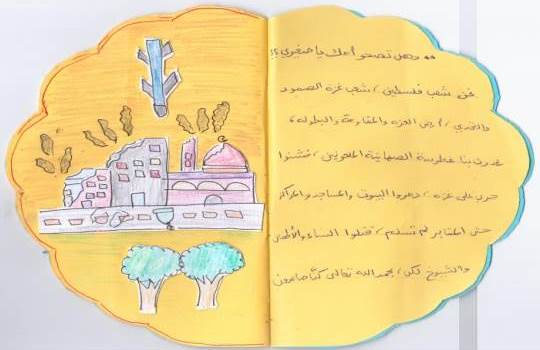 وهل تصحو أمك يا صغيري؟!
نحن شعب فلسطين، شعب غزة الصمود
والتحدي، أرض العزة والمقاومة والبطولة،
غدرت بنا غطرسة الصهاينة الملعونين، فشنوا
حرب على غزة، دمروا البيوت والمساجد والمراكز
حتى المقابر لم تسلم، قتلوا النساء والأطفال
والشيوخ لكن، بحمد الله تعالى كنا صامدون